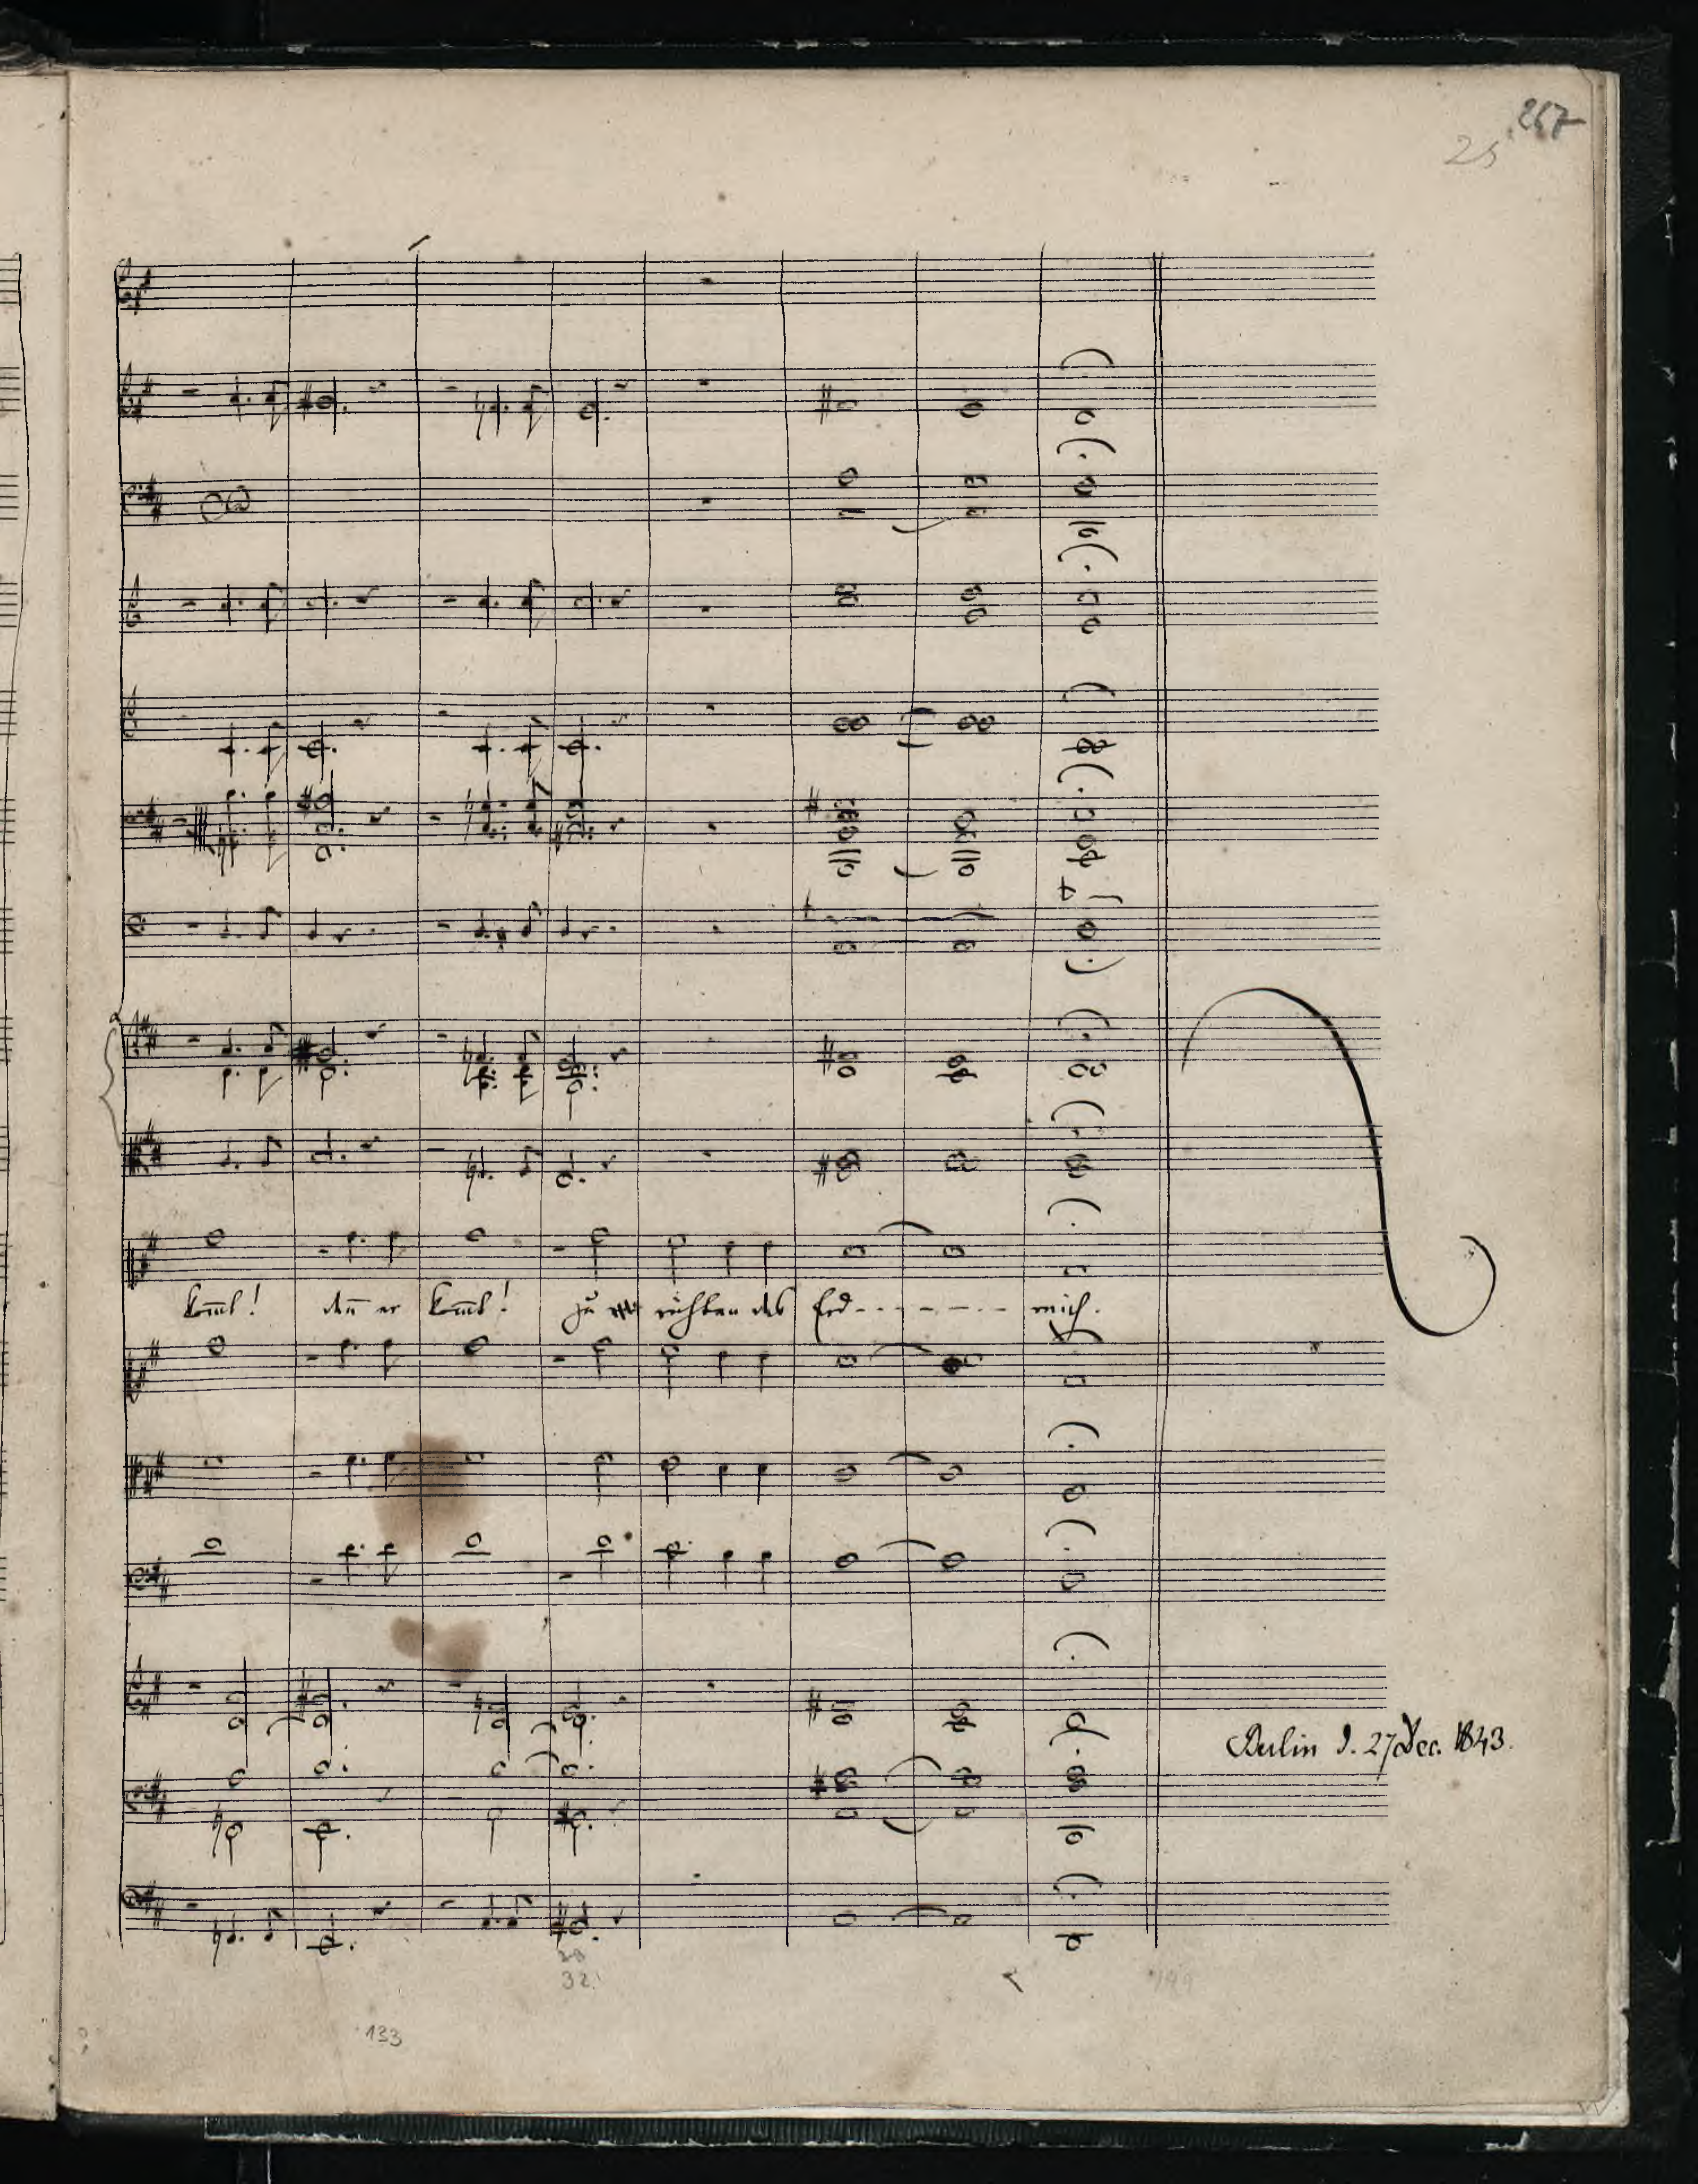 257
25
kom̅t! den̅ er kom̅t! zu richten das Erd - - - - - - - reich.
Berlin d. 27 Dec. 1843.
32.
133
199